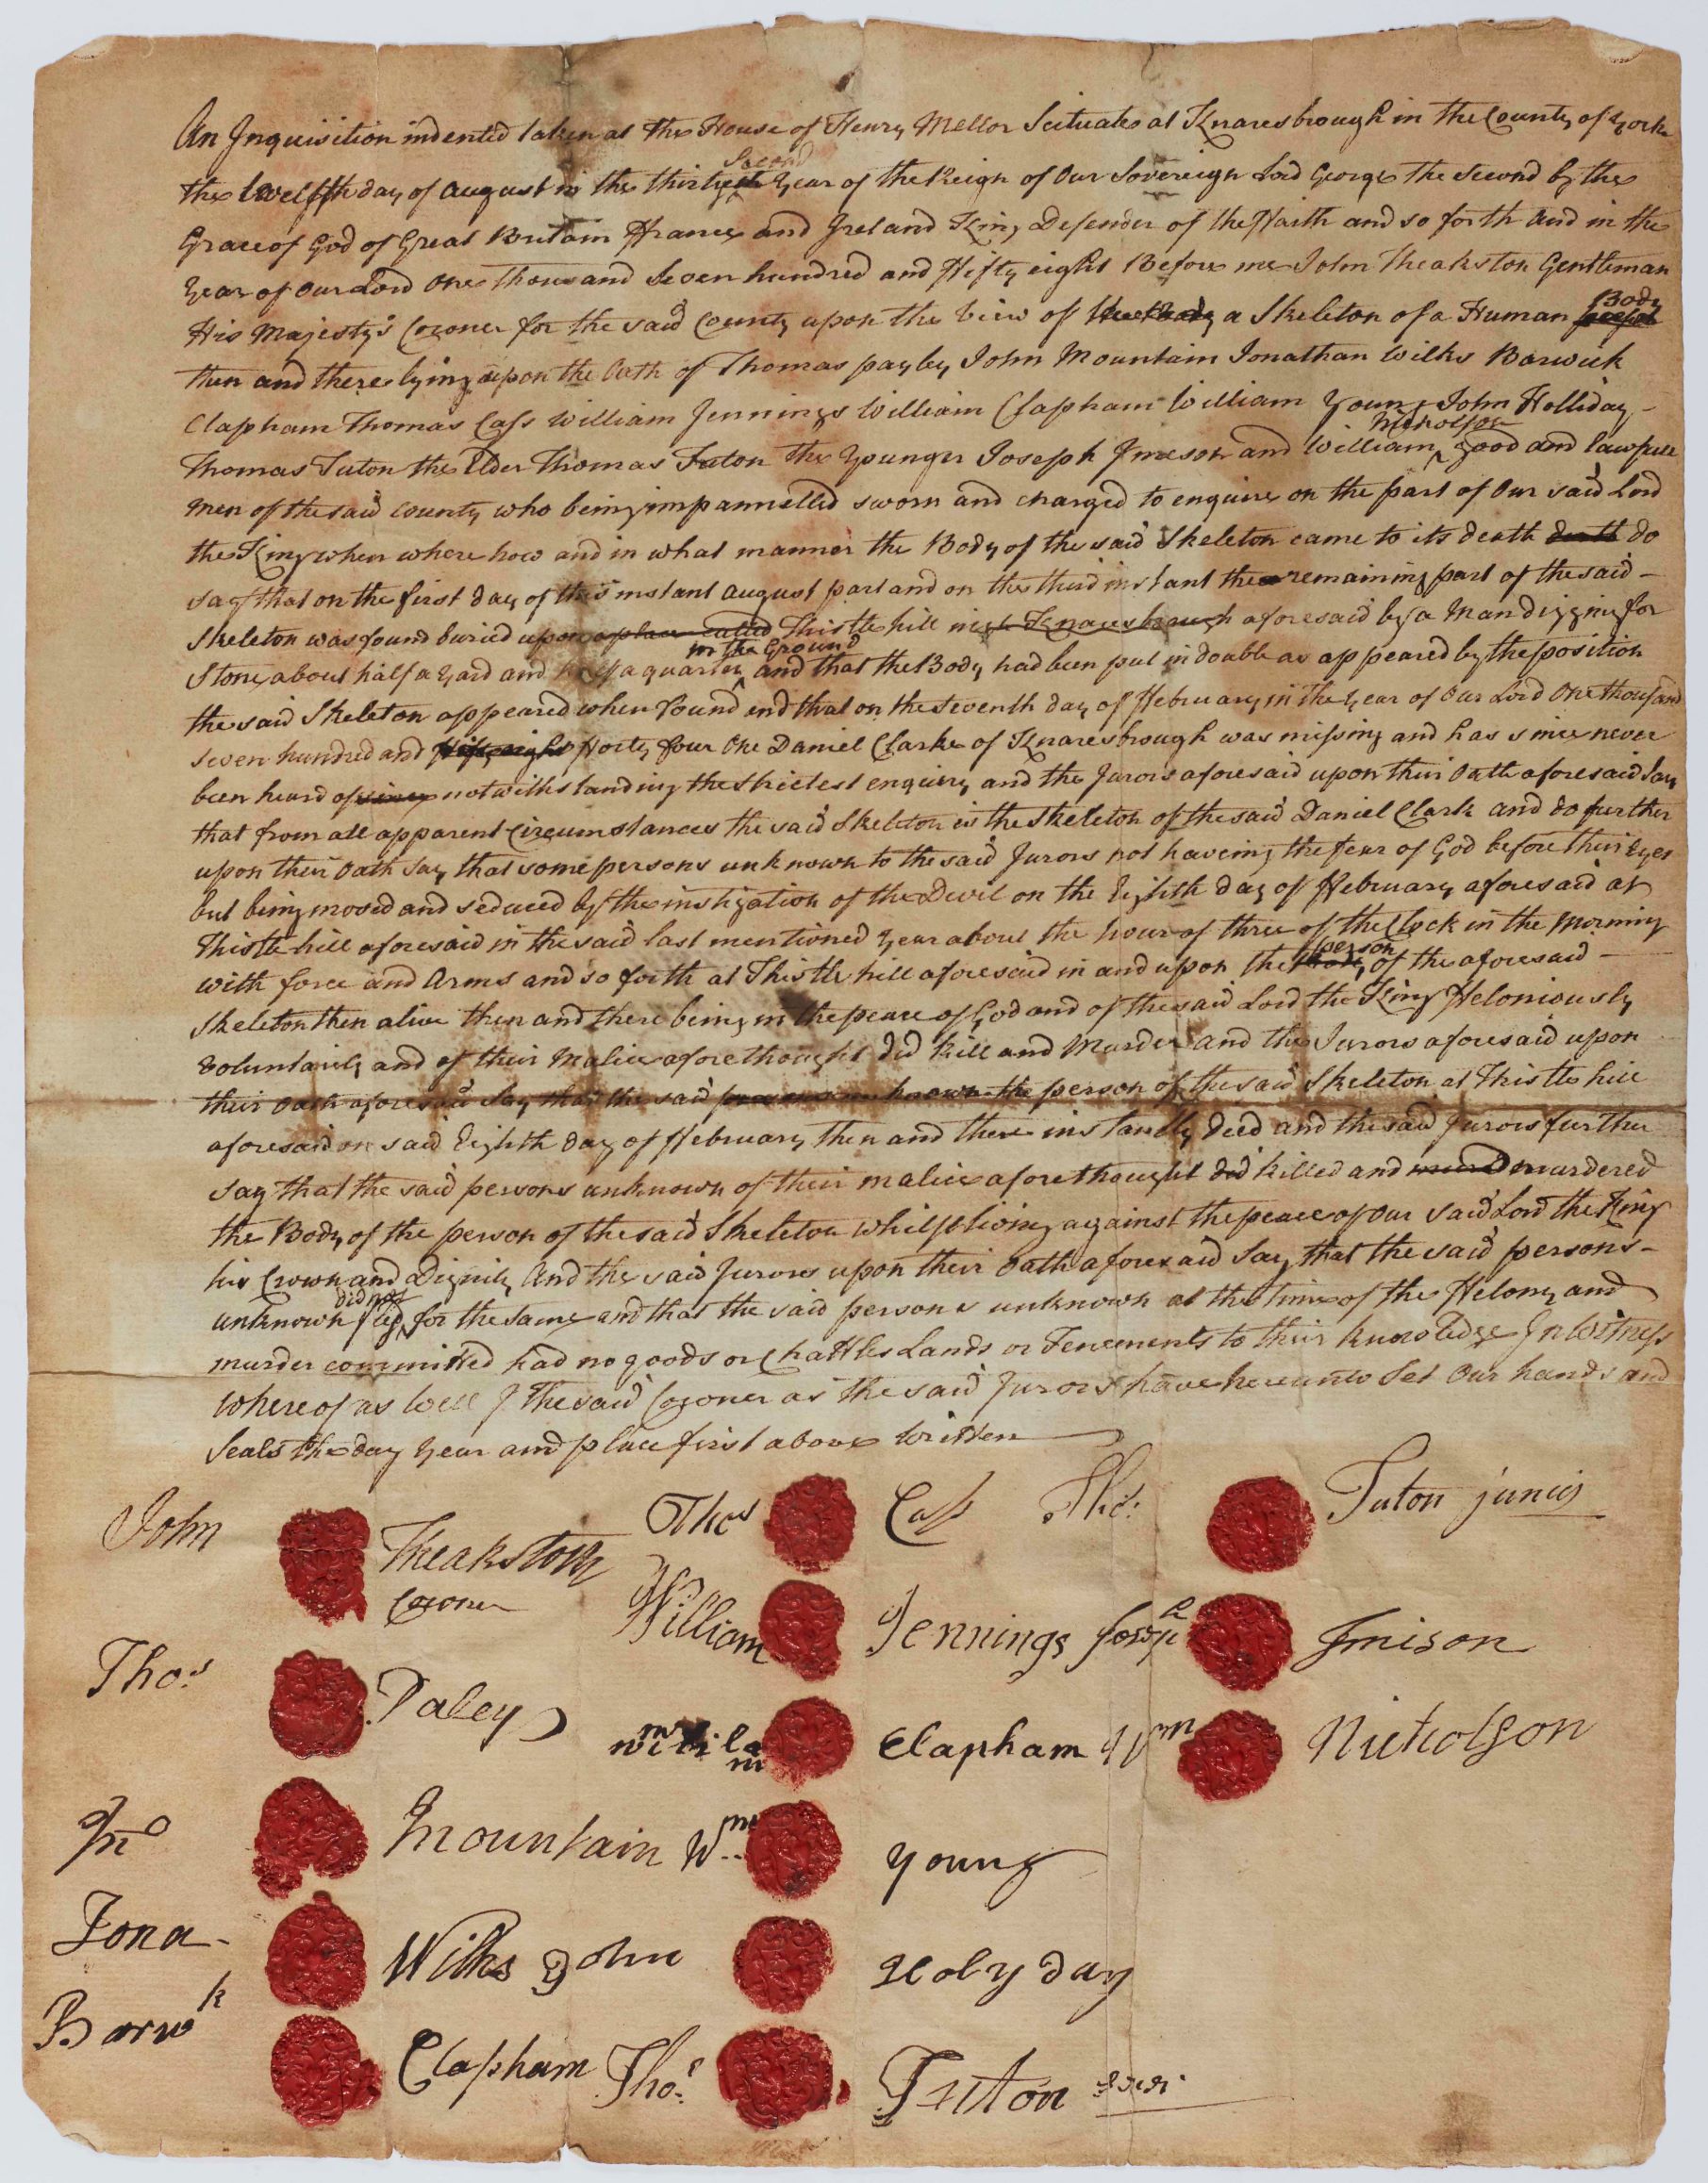 An Inquisition indented taken at the House of Henry Mellor Scituate at Knaresbrough in the County of Yorke
the twelfth day of August in the thirty Second Year of the Reign of Our Sovereign Lord George the Second by the
Grace of God of Great Britain ffrance and Ireland King Defender of the ffaith and so forth And in the
Year of our Lord One thousand Seven hundred and ffifty eight Before me John Theakston Gentleman
His Majesty's Coroner for the said County upon the View of the Body a Skeleton of a Human Body
then and there lying upon the Oath of Thomas payley John Mountain Jonathan Wilks Barwick
Clapham Thomas Cass William Jennings William Clapham William Young John Holliday
Thomas Tuton the Elder Thomas Tuton the Younger Joseph Jmeson and William Nicholson good and lawfull
men of the said County who being impannelled sworn and charged to enquire on the part of Our said Lord
the King when where how and in what manner the Body of the said Skeleton came to its death death do
say that on the first day of this instant August part and on the third instant the remaining part of the said
Skeleton was found buried upon a place called Thistle hill in Knaresbrough aforesaid by a Man digging for
Stone about half a Yard and half a quarter in the Ground and that the Body had been put in double as appeared by the position
the said Skeleton appeared when found and that on the Seventh day of ffebruary in the Year of Our Lord One thousand
seven hundred and ffifty eight fforty four One Daniel Clarke of Knaresbrough was missing and has since never
been heard of since notwithstanding the strictest enquiry and the Jurors aforesaid upon their Oath aforesaid Say
that from all apparent Circumstances the said Skeleton is the Skeleton of the said Daniel Clark and do further
upon their Oath say that some persons unknown to the said Jurors not haveing the fear of God before their Eyes
but being moved and seduced by the instigation of the Devil on the Eighth day of ffebruary aforesaid at
Thistle hill aforesaid in the said last mentioned Year about the hour of three of the Clock in the Morning
with force and Arms and so forth at Thistle hill aforesaid in and upon the Body person of the aforesaid
Skeleton then alive then and there being in the peace of God and of the said Lord the King ffeloniously
Voluntarily and of their Malice aforethought did kill and Murder and the Jurors aforesaid upon
their Oath aforesaid Say that the said persons unknown the person of the said Skeleton at Thistle hill
aforesaid on said Eighth day of ffebruary then and there instantly died and the said Jurors further
say that the said persons unknown of their malice aforethought did killed and murd murdered
the Body of the person of the said Skeleton whilst living against the peace of Our said Lord the King
his Crown and Dignity And the said Jurors upon their Oath aforesaid Say that the said persons
unknown did not fly for the same and that the said persons unknown at the time of the ffelony and
murder committed had no goods or Chattles Lands or Tenements to their knowledge In Witness
whereof as well I the said Coroner as the said Jurors have hereunto Set Our hands and
Seals the day Year and place first above written
John Theakston
Coroner
Thos Paley
Jno Mountain
Jona- Wilks
Barwk Clapham
Thos Cass
William Jennings
Clapham
Wm Young
John Holyday
Thos Tuton
Thos: Tuton junior
Joseph Jmison
Wm Nicholson